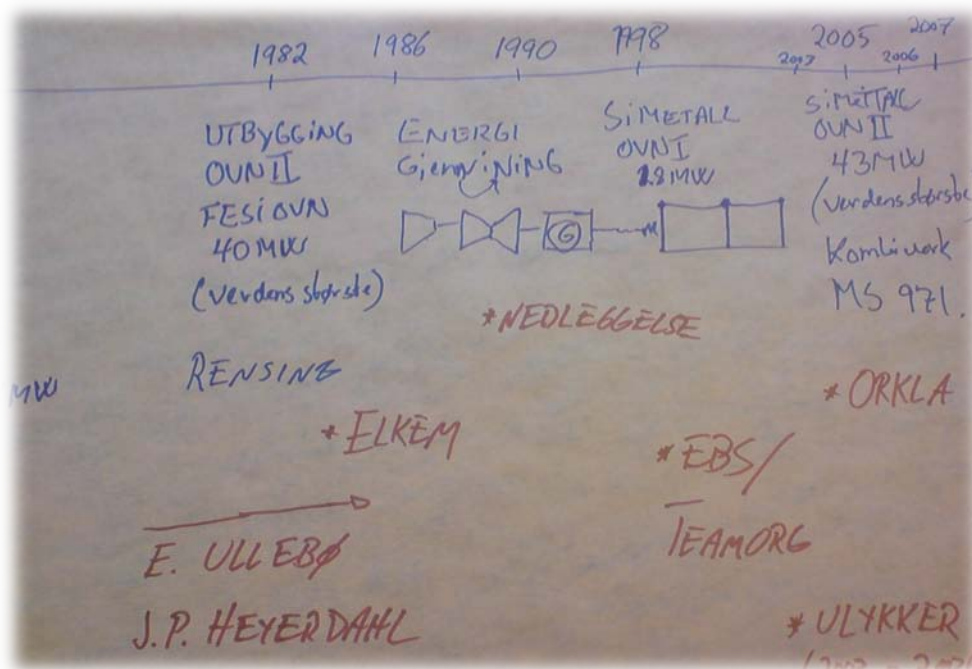 1982 1986 1990 1998 2005 2007
2007 2006
UTBYGGING
OVN II
FESI OVN
40 MW
(verdens største)
RENSING
ENERGI
GjENViNiNG
G
SiMETALL
OVN I
28 MW
SiMETTALL
OVN II
43 MW
(verdens største
Kombiverk
MS 971.
MW
*NEDLEGGELSE
* ELKEM
* ORKLA
* EBS/
TEAMORG
E. ULLEBØ
J.P. HEYERDAHL
* ULYKKER